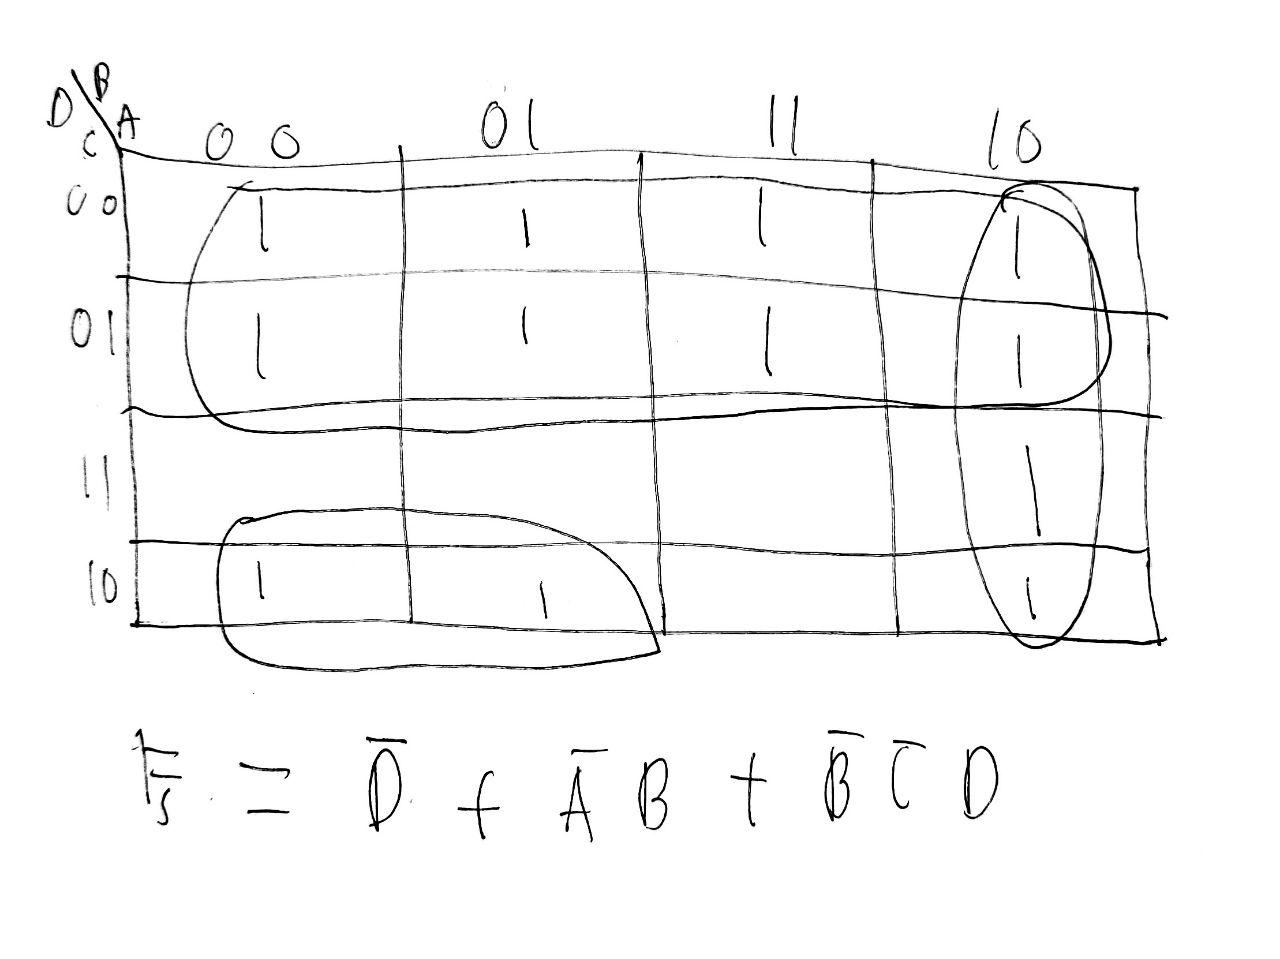 D \ B
C A
0 0 01 11 10
00 1 1 1 1
01 1 1 1 1
11 1
10 1 1 1
F₅ = D̅ + A̅ B + B̅ C̅ D